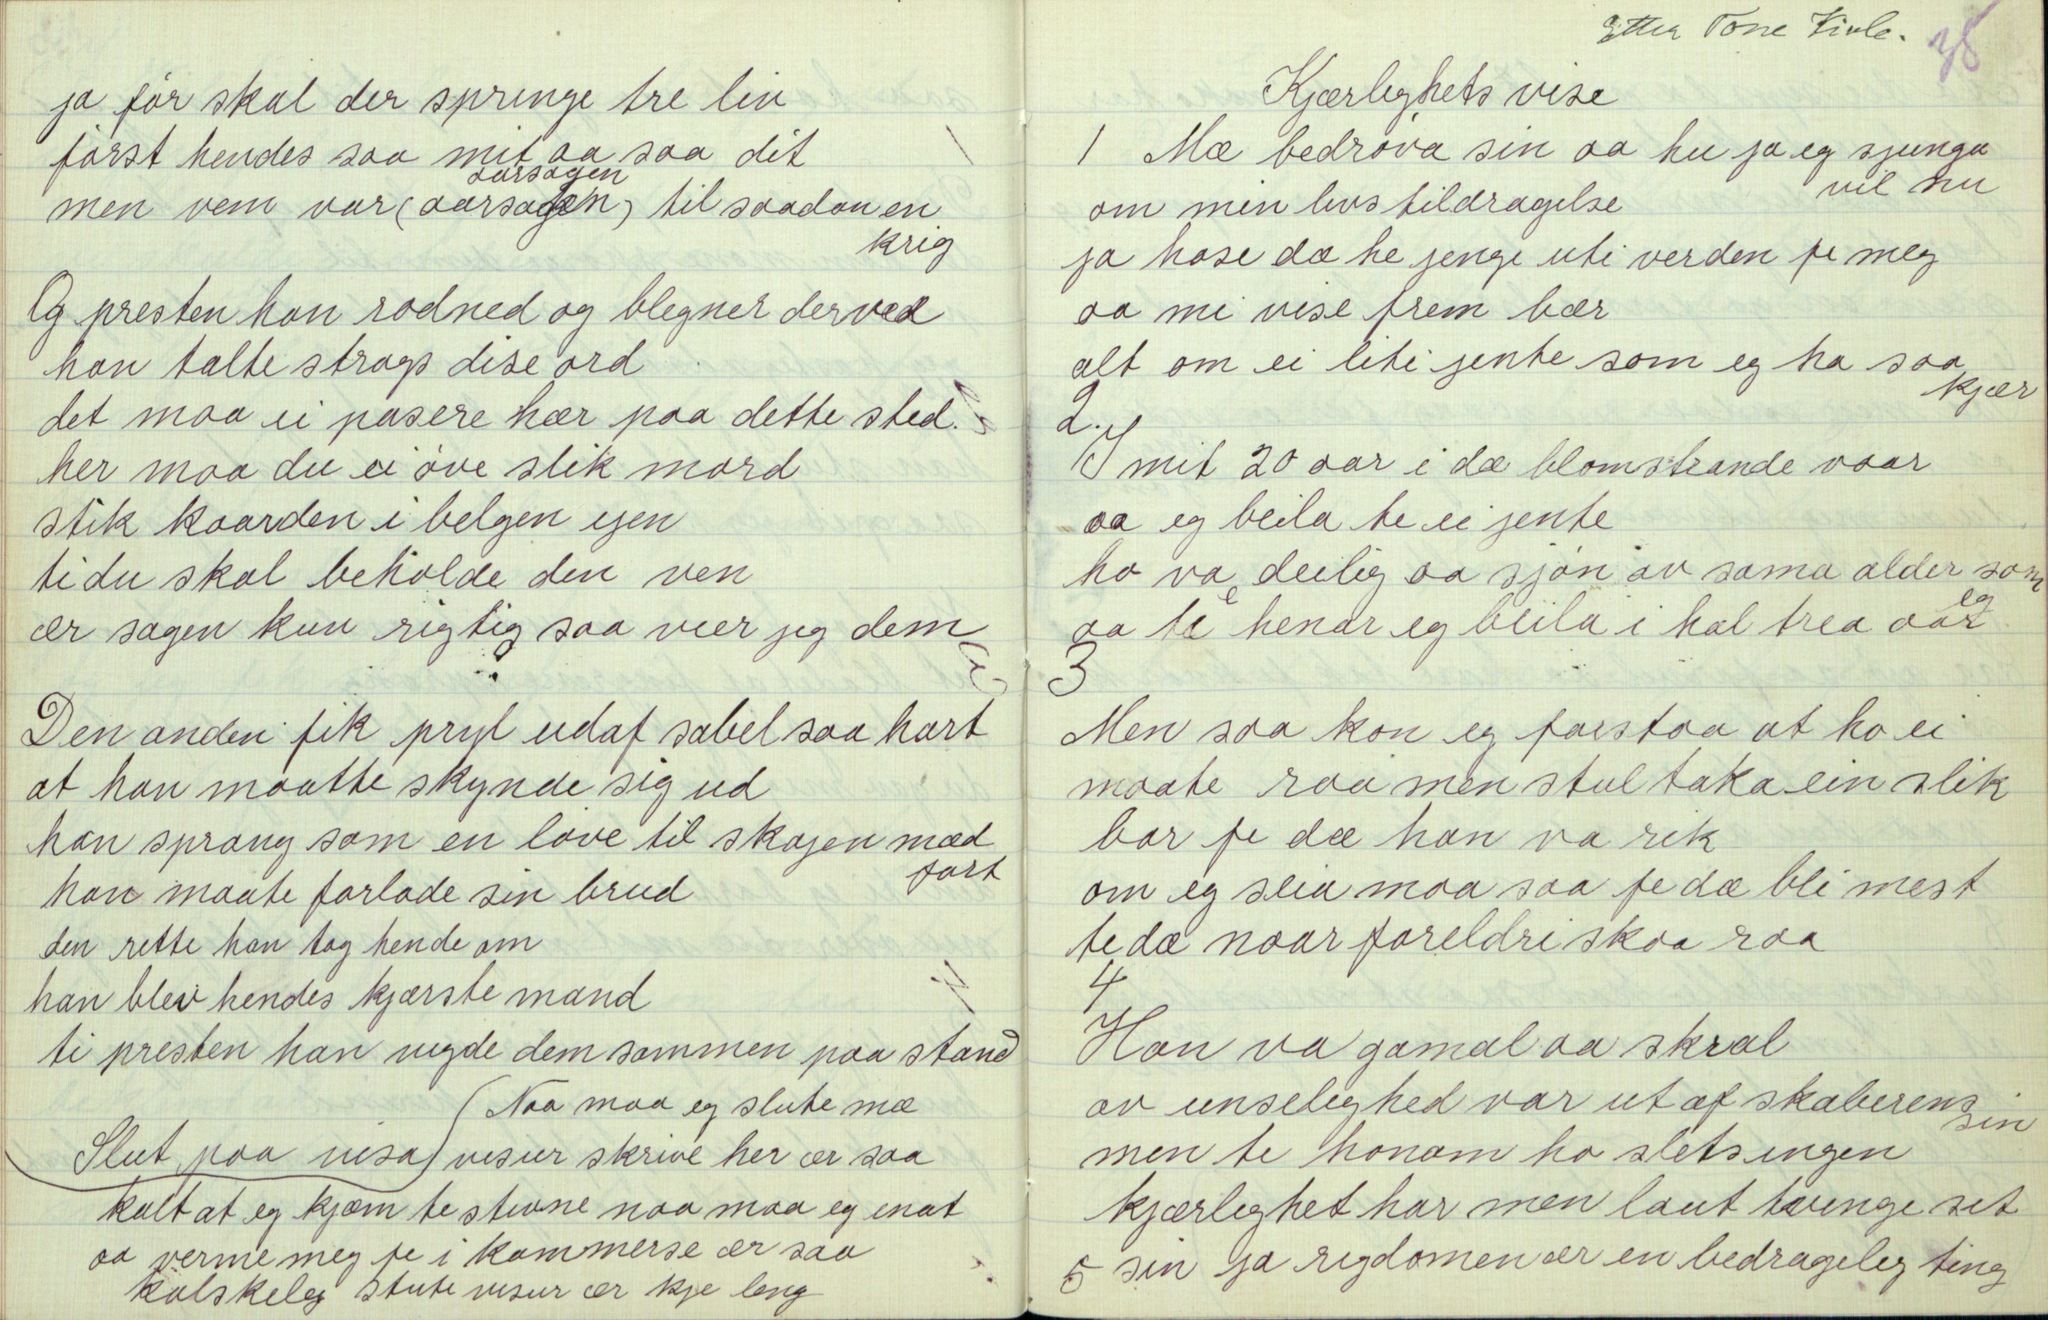 ja før skal der springe tre liv
først hendes saa mit aa saa dit
aarsagen
men vem var (aarsagen) til saadan en
krig
Og presten han rødned og blegner derved
han talte strags dise ord
det maa ei pasere hær paa dette sted.
her maa du ei øve slik mord
stik kaarden i belgen ijen
ti du skal beholde den ven
ær sagen kun rigtig saa vier jeg dem
Den anden fik pryl udaf sabel saa hart
at han maatte skynde sig ud
han sprang som en løve til skogen mæd
fart
han maate forlade sin brud
den rette han tog hende om
han blev hendes kjærste mand
ti presten han vigde dem sammen paa stand
(Naa maa eg slute mæ
Slut paa visa) visur skrive her ær saa
kalt at eg kjæm te stivne naa maa eg inat
aa verme meg fe i kammerse ær saa
kalskeleg stute visur ær kje leng
Etter Tone Kivle.
38
Kjærlighets vise
1 Mæ bedrøva sin aa hu ja eg sjunga
vil nu
om min livs tildragelse
ja hose dæ he jenge uti verden fe meg
aa mi vise frem bær
alt om ei liti jente som eg ha saa
kjær
2.
I mit 20 aar i dæ blomstrande vaar
aa eg beila te ei jente
ho va deilig aa sjøn av sama alder som
eg
aa te henar eg beila i hal trea aar
3
Men saa kon eg forstaa at ho ei
maate raa men stul taka ein slik
bar fe dæ han va rik
om eg seia maa saa fe dæ bli mest
te dæ naar foreldri skaa raa
4
Han va gamal aa skral
av unselighed var ut af skaberens
sin
men te honom ho slets ingen
kjærlighet har men laut tvinge sit
5 sin ja rigdomen ær en bedrageleg ting